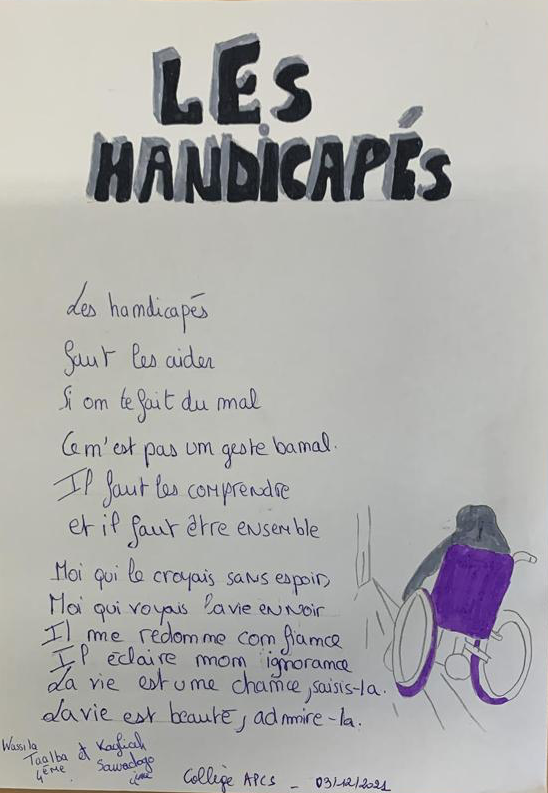 LES
HANDICAPÉS
Les handicapés
faut les aider
Si on te fait du mal
Ce n'est pas un geste banal.
Il faut les comprendre
et il faut être ensemble
Moi qui le croyais sans espoir,
Moi qui voyais la vie en noir
Il me redonne confiance
Il éclaire mon ignorance
La vie est une chance, saisis-la.
La vie est beauté, admire-la.
Wassila
Taalba
4ÈME
et
Sawadogo
Collège APCS - 03/12/2021